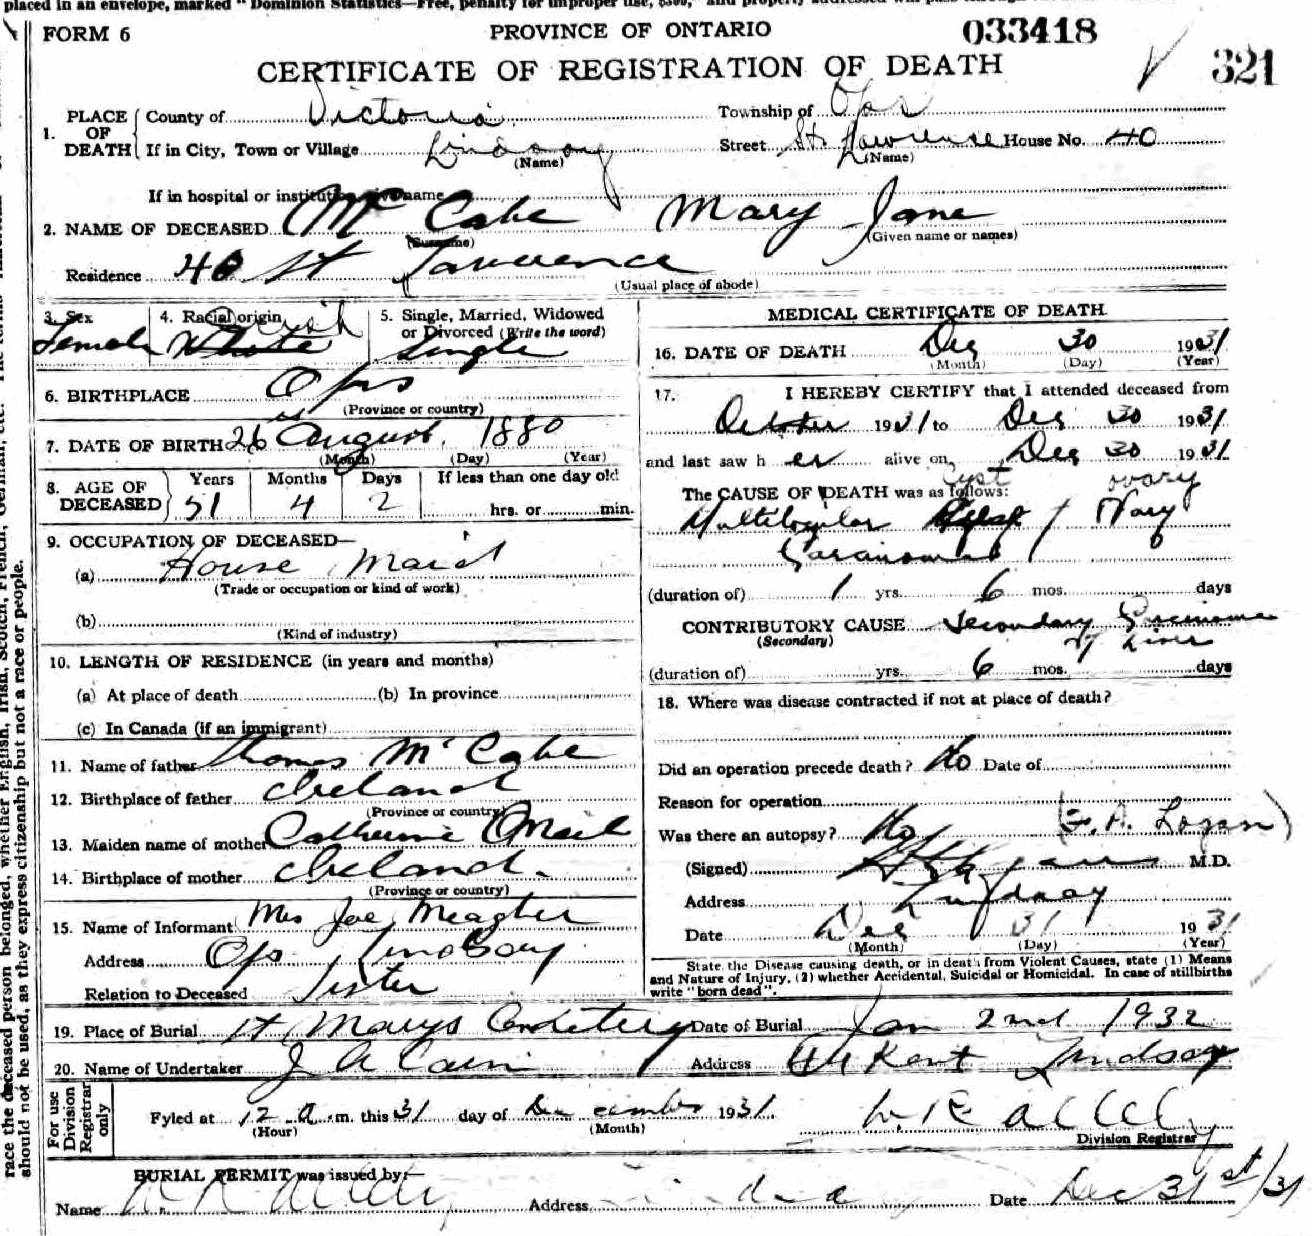 placed in an envelope, marked "Dominion Statistics—Free, penalty for improper use, $300," and property addressed will pass
FORM 6 PROVINCE OF ONTARIO 033418
CERTIFICATE OF REGISTRATION OF DEATH 321
1. PLACE OF DEATH County of Victoria Township of Ops
If in City, Town or Village Lindsay (Name) Street St. Lawrence (Name) House No. 40
If in hospital or institution, give name
2. NAME OF DECEASED Mc Cabe (Surname) Mary Jane (Given name or names)
Residence 40 St Lawrence (Usual place of abode)
3. Sex Female 4. Racial origin White Irish 5. Single, Married, Widowed or Divorced (Write the word) Single
6. BIRTHPLACE Ops (Province or country)
7. DATE OF BIRTH 26 August 1880 (Month) (Day) (Year)
8. AGE OF DECEASED Years 51 Months 4 Days 2 If less than one day old hrs. or min.
9. OCCUPATION OF DECEASED—
(a) House Maid (Trade or occupation or kind of work)
(b) (Kind of industry)
10. LENGTH OF RESIDENCE (in years and months)
(a) At place of death (b) In province
(c) In Canada (if an immigrant)
11. Name of father Thomas McCabe
12. Birthplace of father Ireland (Province or country)
13. Maiden name of mother Catherine O'Neil
14. Birthplace of mother Ireland. (Province or country)
15. Name of Informant Mrs Joe Meagher
Address Ops Lindsay
Relation to Deceased Sister
MEDICAL CERTIFICATE OF DEATH.
16. DATE OF DEATH Dec 30 1931 (Month) (Day) (Year)
17. I HEREBY CERTIFY that I attended deceased from
October 1931 to Dec 30 1931
and last saw her alive on Dec 30 1931.
The CAUSE OF DEATH was as follows: Cyst ovary
Multilocular Cyst / Ovary
Carcinoma
(duration of) 1 yrs. 6 mos. days
CONTRIBUTORY CAUSE (Secondary) Secondary Carcinoma
of Liver
(duration of) yrs. 6 mos. days
18. Where was disease contracted if not at place of death?
Did an operation precede death? No Date of
Reason for operation
Was there an autopsy? No (F. A. Logan)
(Signed) M.D.
Address Lindsay
Date Dec 31 1931 (Month) (Day) (Year)
State the Disease causing death, or in death from Violent Causes, state (1) Means
and Nature of Injury, (2) whether Accidental, Suicidal or Homicidal. In case of stillbirths
write "born dead".
19. Place of Burial St Marys Cemetery Date of Burial Jan 2nd 1932
20. Name of Undertaker J A Cain Address Kent Lindsay
For use Division Registrar only
Fyled at 12 a.m. this 31 day of December 1931.
(Hour) (Month) Division Registrar
BURIAL PERMIT was issued by—
Name Address Date Dec 31st/31
race the deceased person belonged, whether English, Irish, Scotch, French, German, etc.
should not be used, as they express citizenship but not a race or people.